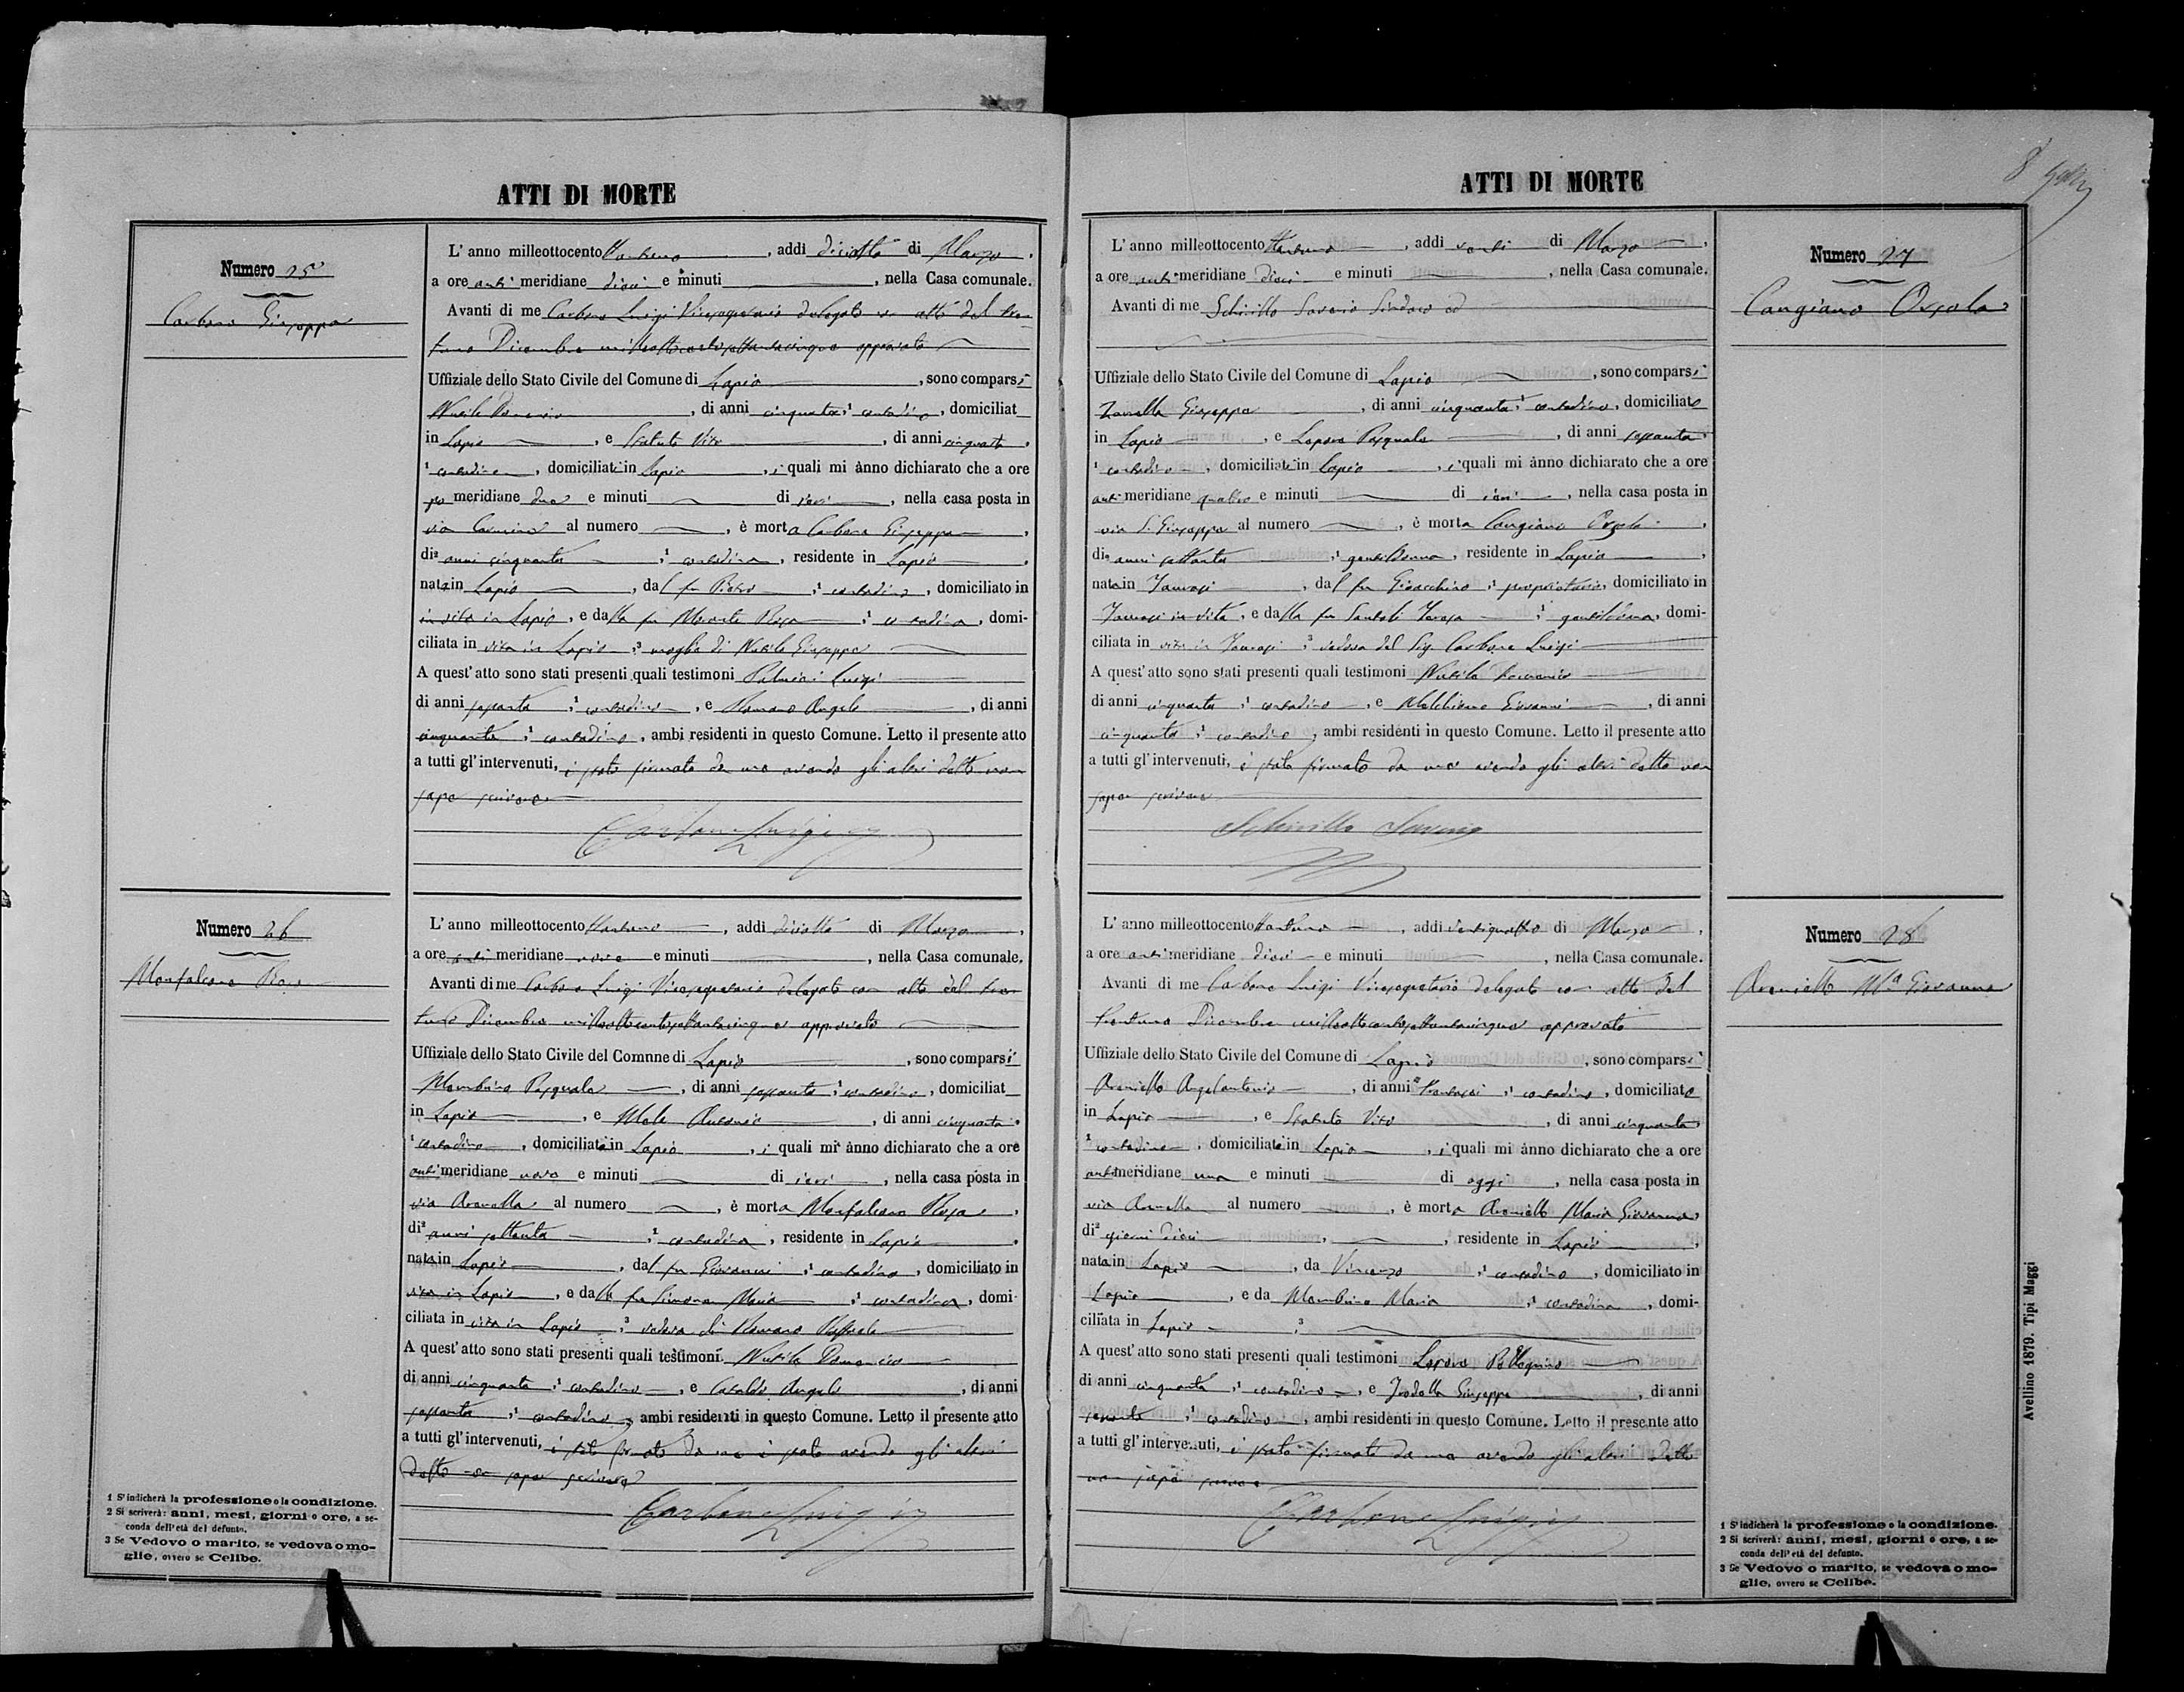 ATTI DI MORTE
Numero 25
Carbone Giuseppa
L' anno milleottocento ottantuno, addi diciotto di Marzo,
a ore anti meridiane dieci e minuti, nella Casa comunale.
Avanti di me Carbone Luigi Vicesegretario delegato con atto del tren-
tuno Dicembre millottocentosettantacinque approvato
Uffiziale dello Stato Civile del Comune di Lapio, sono comparsi
Nutile Domenico, di anni cinquanta, 1 contadino, domiciliat
in Lapio, e Statuto Vito, di anni cinquanta,
1 contadino, domiciliati in Lapio, i quali mi ànno dichiarato che a ore
po meridiane due e minuti di ieri, nella casa posta in
via al numero, è morta Carbone Giuseppa,
di 2 anni cinquanta, 1 contadina, residente in Lapio,
nata in Lapio, dal fu Pietro, 1 contadino, domiciliato in
in vita in Lapio, e dalla fu Rosa, 1 contadina, domi-
ciliata in vita in Lapio, 3 moglie di Nutile Giuseppe
A quest' atto sono stati presenti quali testimoni Luigi
di anni sessanta, 1 contadino, e Romano Angelo, di anni
cinquanta, 1 contadino, ambi residenti in questo Comune. Letto il presente atto
a tutti gl' intervenuti, è stato firmato da me avendo gli altri detto non
saper scrivere
Carbone Luigi
Numero 26
Monfalcone Rosa
L' anno milleottocento ottantuno, addi diciotto di Marzo,
a ore anti meridiane nove e minuti, nella Casa comunale.
Avanti di me Carbone Luigi Vicesegretario delegato con atto del tren-
tuno Dicembre millottocentosettantacinque approvato
Uffiziale dello Stato Civile del Comnne di Lapio, sono comparsi
Mambino Pasquale, di anni sessanta, 1 contadino, domiciliat
in Lapio, e Mele Antonio, di anni cinquanta,
1 contadino, domiciliati in Lapio, i quali mi ànno dichiarato che a ore
anti meridiane nove e minuti di ieri, nella casa posta in
via Arenella al numero, è morta Monfalcone Rosa,
di 2 anni settanta, 1 contadina, residente in Lapio,
nata in Lapio, dal fu Giovanni, 1 contadino, domiciliato in
vita in Lapio, e dalla fu Simona Maria, 1 contadina, domi-
ciliata in vita in Lapio, 3 vedova di Romano Raffaele
A quest' atto sono stati presenti quali testimoni Nutile Domenico
di anni cinquanta, 1 contadino, e Cataldo Angelo, di anni
sessanta, 1 contadino, ambi residenti in questo Comune. Letto il presente atto
a tutti gl' intervenuti, è stato firmato da me è stato avendo gli altri
detto non saper scrivere
Carbone Luigi
1 S'indicherà la professione o la condizione.
2 Si scriverà: anni, mesi, giorni o ore, a se-
conda dell'età del defunto.
3 Se Vedovo o marito, se vedova o mo-
glie, ovvero se Celibe.
8
ATTI DI MORTE
Numero 27
Cangiano Orsola
L' anno milleottocento ottantuno, addi venti di Marzo,
a ore anti meridiane dieci e minuti, nella Casa comunale.
Avanti di me Schirillo Saverio Sindaco ed
Uffiziale dello Stato Civile del Comune di Lapio, sono comparsi
Giuseppe, di anni cinquanta, 1 contadino, domiciliato
in Lapio, e Lepore Pasquale, di anni sessanta,
1 contadino, domiciliati in Lapio, i quali mi ànno dichiarato che a ore
anti meridiane quattro e minuti di ieri, nella casa posta in
via S. Giuseppe al numero, è morta Cangiano Orsola,
di 2 anni settanta, 1 gentildonna, residente in Lapio,
nata in Taurasi, dal fu Gioacchino, 1 proprietario, domiciliato in
Taurasi in vita, e dalla fu Santoli Teresa, 1 gentildonna, domi-
ciliata in vita in Taurasi, 3 vedova del Sig Carbone Luigi
A quest' atto sono stati presenti quali testimoni Nutile Domenico
di anni cinquanta, 1 contadino, e Melchionno Giovanni, di anni
cinquanta, 1 contadino, ambi residenti in questo Comune. Letto il presente atto
a tutti gl' intervenuti, è stato firmato da me avendo gli altri detto non
saper scrivere
Schirillo Saverio
Numero 28
Areniello Mª Giovanna
L' anno milleottocento ottantuno, addi ventiquattro di Marzo,
a ore anti meridiane dieci e minuti, nella Casa comunale.
Avanti di me Carbone Luigi Vicesegretario delegato con atto del
trentuno Dicembre millottocentosettantacinque approvato
Uffiziale dello Stato Civile del Comune di Lapio, sono comparsi
Areniello Angelantonio, di anni trentasei, 1 contadino, domiciliato
in Lapio, e Statuto Vito, di anni cinquanta,
1 contadino, domiciliati in Lapio, i quali mi ànno dichiarato che a ore
anti meridiane una e minuti di oggi, nella casa posta in
via Arenella al numero, è morta Areniello Maria Giovanna,
di 2 giorni dieci, residente in Lapio,
nata in Lapio, da Vincenzo, 1 contadino, domiciliato in
Lapio, e da Mambino Maria, 1 contadina, domi-
ciliata in Lapio, 3
A quest' atto sono stati presenti quali testimoni Lepore Pellegrino
di anni cinquanta, 1 contadino, e Giuseppe, di anni
sessanta, 1 contadino, ambi residenti in questo Comune. Letto il presente atto
a tutti gl' intervenuti, è stato firmato da me avendo gli altri detto
non saper scrivere
Carbone Luigi
1 S'indicherà la professione o la condizione.
2 Si scriverà: anni, mesi, giorni o ore, a se-
conda dell'età del defunto.
3 Se Vedovo o marito, se vedova o mo-
glie, ovvero se Celibe.
Avellino 1879. Tipi Maggi